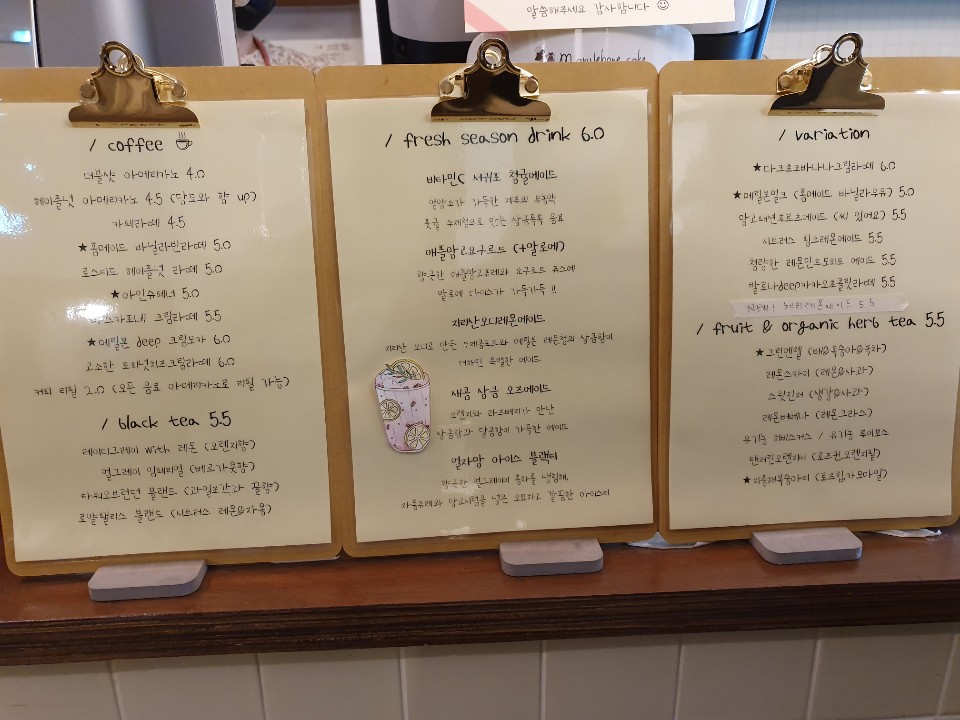 말씀해주세요 감사합니다 ☺
/ coffee
더블샷 아메리카노 4.0
헤이즐넛 아메리카노 4.5 (당도와 향 up)
카페라떼 4.5
★홈메이드 바닐라빈라떼 5.0
로스티드 헤이즐넛 라떼 5.0
★아인슈페너 5.0
크림라떼 5.5
★메릴본 deep 크림모카 6.0
고소한 토라닛치즈크림라떼 6.0
커피 리필 2.0 (모든 음료 아메리카노로 리필 가능)
/ black tea 5.5
레이디그레이 with 레몬 (오렌지향)
얼그레이 임페리얼 (베르가못향)
타워오브런던 블랜드 (과일조각과 꿀향)
로얄팰리스 블랜드 (시트러스 레몬&자몽)
/ fresh season drink 6.0
비타민C 서귀포 청귤에이드
영양소가 가득한 제주의
수제청으로 만든 상큼톡톡 음료
애플망고요구르트 (+알로에)
향긋한 애플망고퓨레와 요구르트 쥬스에
알로에 다이스가 가득가득!!
지리산오디레몬에이드
지리산 오디로 만든 수제청으로와 메릴본 레몬청의 상큼함이
더해진 특별한 에이드
새콤 상큼 오즈에이드
오렌지와 라즈베리가 만난
상큼함과 달콤함이 가득한 에이드
열자망 아이스 블랙티
향긋한 얼그레이에 홍차를 냉침해,
자몽퓨레와 망고시럽을 넣은 오묘하고 깔끔한 아이스티
/ variation
★다크초코바나나크림라떼 6.0
★메릴본밀크 (홈메이드 바닐라우유) 5.0
망고패션후르츠에이드 (씨 있어요) 5.5
시트러스 핑크레몬에이드 5.5
청량한 레몬민트모히또 에이드 5.5
발로나deep카카오초콜릿라떼 5.5
NEW! 체리레몬에이드 5.5
/ fruit & organic herb tea 5.5
★그린엔젤 (배&복숭아&녹차)
레몬스카이 (레몬&사과)
스윗진저 (생강&사과)
레몬버베나 (레몬그라스)
유기농 히비스커스 / 유기농 루이보스
탠저린오렌지 (로즈힙,오렌지필)